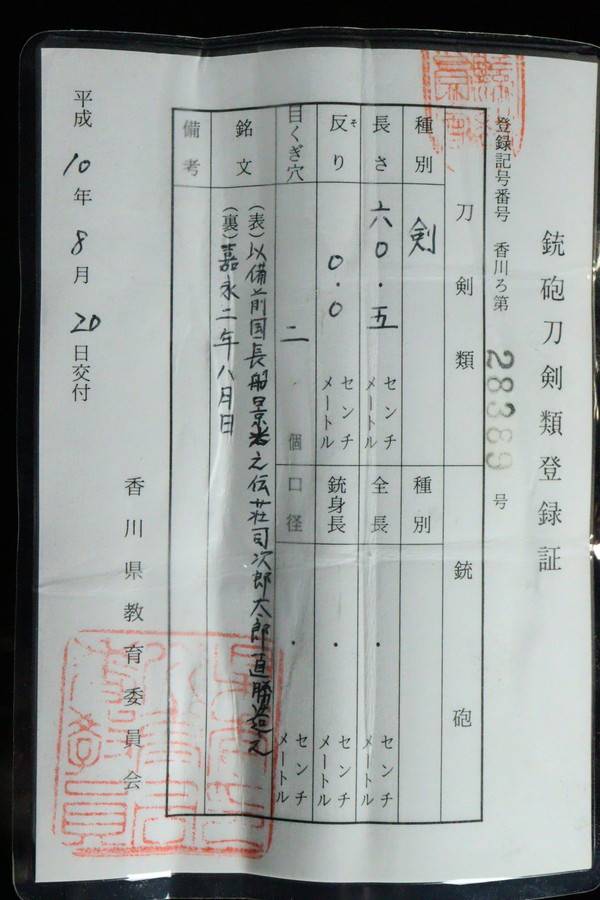 銃砲刀剣類登録証
登録記号番号 香川ろ第 28389 号
刀剣類
種別 剣
長さ 六〇.五 センチメートル
反り 〇.〇 センチメートル
そ
目くぎ穴 二 個
銃砲
種別
全長 . センチメートル
銃身長 . センチメートル
口径 . センチメートル
銘文
(表)以備前国長船景光之伝荘司次郎太郎直勝造之
(裏)嘉永二年八月日
備考
平成 10 年 8 月 20 日交付
香川県教育委員会